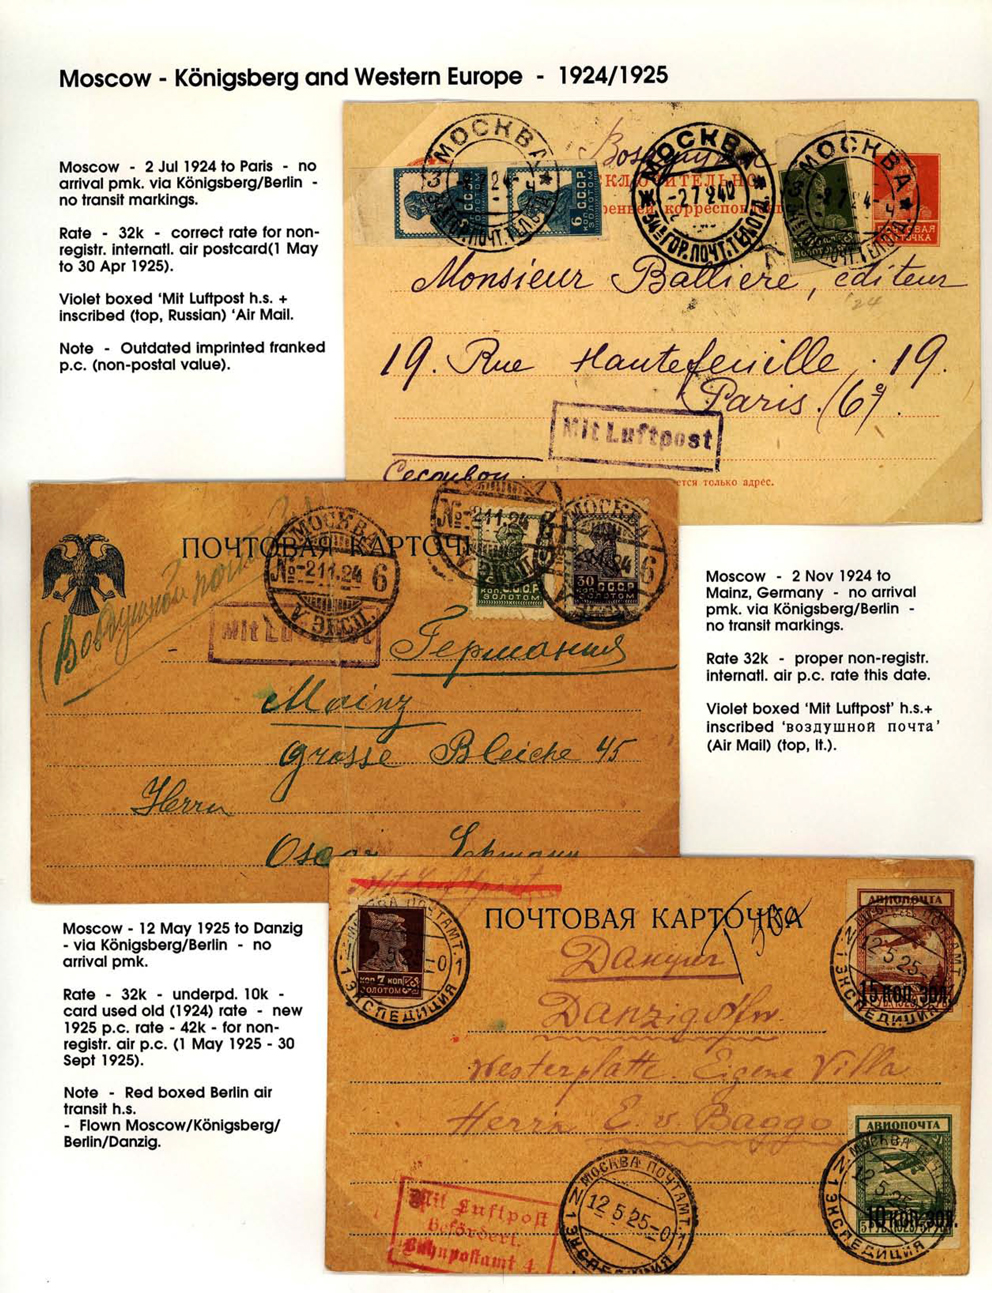 Moscow - Königsberg and Western Europe - 1924/1925
Moscow - 2 Jul 1924 to Paris - no
arrival pmk. via Königsberg/Berlin -
no transit markings.
Rate - 32k - correct rate for non-
registr. internatl. air postcard(1 May
to 30 Apr 1925).
Violet boxed 'Mit Luftpost h.s. +
inscribed (top, Russian) 'Air Mail.
Note - Outdated imprinted franked
p.c. (non-postal value).
МОСКВА
МОСКВА
-2 7 24
МОСКВА
ГОР.ПОЧТ.ТЕЛ.ОТД.
ПОЧТОВАЯ
КАРТОЧКА
Monsieur Ballière, éditeur
'24
19. Rue Hautefeuille . 19.
Paris. (6e).
Mit Luftpost
тся только адрес.
ПОЧТОВАЯ КАРТОЧ
МОСКВА
№-2.11.24 6
ЭКСП.
-2.11.24
МОСКВА
30 С.С.С.Р
КОП. ЗОЛОТОМ
Воздушной
Mit Luf
Германия
Mainz
Grosse Bleiche 45
Herrn
Oscar Lehmann
Moscow - 2 Nov 1924 to
Mainz, Germany - no arrival
pmk. via Königsberg/Berlin -
no transit markings.
Rate 32k - proper non-registr.
internatl. air p.c. rate this date.
Violet boxed 'Mit Luftpost' h.s.+
inscribed 'воздушной почта'
(Air Mail) (top, lt.).
Moscow - 12 May 1925 to Danzig
- via Königsberg/Berlin - no
arrival pmk.
Rate - 32k - underpd. 10k -
card used old (1924) rate - new
1925 p.c. rate - 42k - for non-
registr. air p.c. (1 May 1925 - 30
Sept 1925).
Note - Red boxed Berlin air
transit h.s.
- Flown Moscow/Königsberg/
Berlin/Danzig.
Mit Luftpost
ПОЧТОВАЯ КАРТОЧКА
КОП 7 КОП
ЗОЛОТОМ
1 ЭКСПЕДИЦИЯ
АВИОПОЧТА
12 5 25
15 КОП. ЗОЛ.
1 ЭКСПЕДИЦИЯ
Данциг
Danzig
Westerplatte. Eigene Villa
Herrn E. v Baggo
АВИОПОЧТА
12 5 25
10 КОП. ЗОЛ.
1 ЭКСПЕДИЦИЯ
МОСКВА ПОЧТАМТ.
12 5 25-0
1 ЭКСПЕДИЦИЯ
Mit Luftpost
befördert.
Bahnpostamt 4